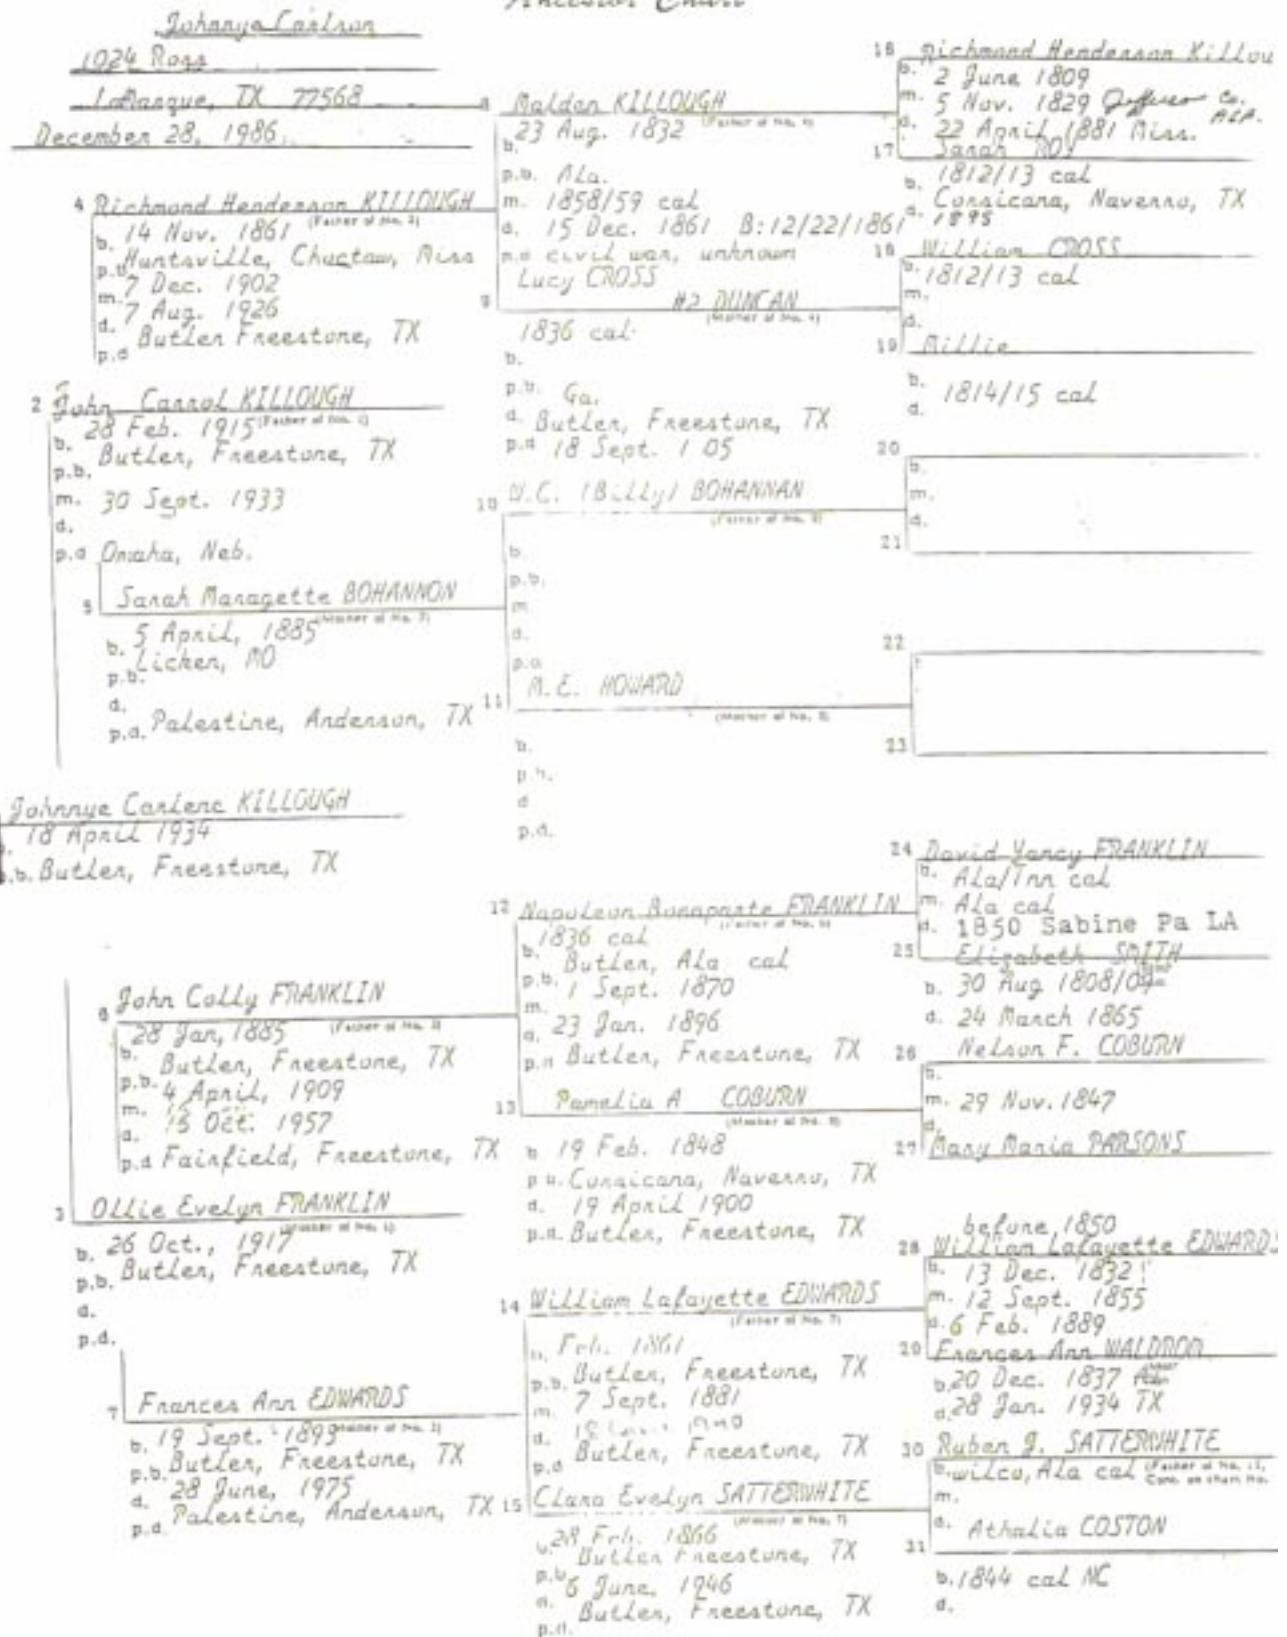 Ancestor Chart
Johannye Carlson
1024 Ross
LaMarque, TX 77568
December 28, 1986
4 Richmond Henderson KILLOUGH
(Father of No. 2)
b. 14 Nov. 1861
p.b. Huntsville, Choctaw, Miss
m. 7 Dec. 1902
d. 7 Aug. 1926
p.d Butler Freestone, TX
2 John Carrol KILLOUGH
(Father of No. 1)
b. 28 Feb. 1915
p.b. Butler, Freestone, TX
m. 30 Sept. 1933
d.
p.d Omaha, Neb.
5 Sarah Maragette BOHANNON
(Mother of No. 2)
b. 5 April, 1885
p.b. Licken, MO
d.
p.d. Palestine, Anderson, TX
Johnnye Carlene KILLOUGH
18 April 1934
.b. Butler, Freestone, TX
6 John Colly FRANKLIN
(Father of No. 3)
b. 28 Jan, 1885
p.b. Butler, Freestone, TX
m. 4 April, 1909
d. Oct. 1957
p.d Fairfield, Freestone, TX
3 Ollie Evelyn FRANKLIN
(Mother of No. 1)
b. 26 Oct., 1917
p.b. Butler, Freestone, TX
d.
p.d.
7 Frances Ann EDWARDS
(Mother of No. 3)
b. 19 Sept. 1893
p.b. Butler, Freestone, TX
d. 28 June, 1975
p.d. Palestine, Anderson, TX
8 Maldon KILLOUGH
(Father of No. 4)
b. 23 Aug. 1832
p.b. Ala.
m. 1858/59 cal
d. 15 Dec. 1861 B:12/22/1861
p.d civil war, unknown
9 Lucy CROSS
#2 DUNCAN
(Mother of No. 4)
1836 cal
b.
p.b. Ga.
d. Butler, Freestone, TX
p.d 18 Sept. 1 05
10 W.C. (Billy) BOHANNAN
(Father of No. 5)
b.
p.b.
m.
d.
p.d
11 M.E. HOWARD
(Mother of No. 5)
b.
p.b.
d
p.d.
12 Napoleon Bonaparte FRANKLIN
(Father of No. 6)
b. 1836 cal
p.b. Butler, Ala cal
m. 1 Sept. 1870
d. 23 Jan. 1896
p.d Butler, Freestone, TX
13 Pamelia A COBURN
(Mother of No. 6)
b 19 Feb. 1848
p.b. Corsicana, Naverro, TX
d. 19 April 1900
p.d. Butler, Freestone, TX
14 William Lafayette EDWARDS
(Father of No. 7)
b. Feb. 1861
p.b. Butler, Freestone, TX
m. 7 Sept. 1881
d.
p.d Butler, Freestone, TX
15 Clara Evelyn SATTERWHITE
(Mother of No. 7)
b. 28 Feb. 1866
p.b Butler Freestone, TX
d. 6 June, 1946
p.d. Butler, Freestone, TX
16 Richmond Henderson Killou
b. 2 June 1809
m. 5 Nov. 1829 Jefferson Co. ALA.
d. 22 April 1881 Miss.
17 Sarah ROY
b. 1812/13 cal
d. Corsicana, Naverro, TX
1895
18 William CROSS
b. 1812/13 cal
m.
d.
19 Millie
b. 1814/15 cal
d.
20
b.
m.
d.
21
22
23
24 David Yancy FRANKLIN
b. Ala/Tnn cal
m. Ala cal
d. 1850 Sabine Pa LA
25 Elizabeth SMITH
b. 30 Aug 1808/09
d. 24 March 1865
26 Nelson F. COBURN
b.
m. 29 Nov. 1847
d.
27 Mary Maria PARSONS
before 1850
28 William Lafayette EDWARDS
b. 13 Dec. 1832
m. 12 Sept. 1855
d. 6 Feb. 1889
29 Frances Ann WALDROM
b. 20 Dec. 1837
d. 28 Jan. 1934 TX
30 Ruben J. SATTERWHITE
b. wilco, Ala cal
(Father of No. 15, Cont. on chart No.
m.
d.
31 Athalia COSTON
b. 1844 cal NC
d.